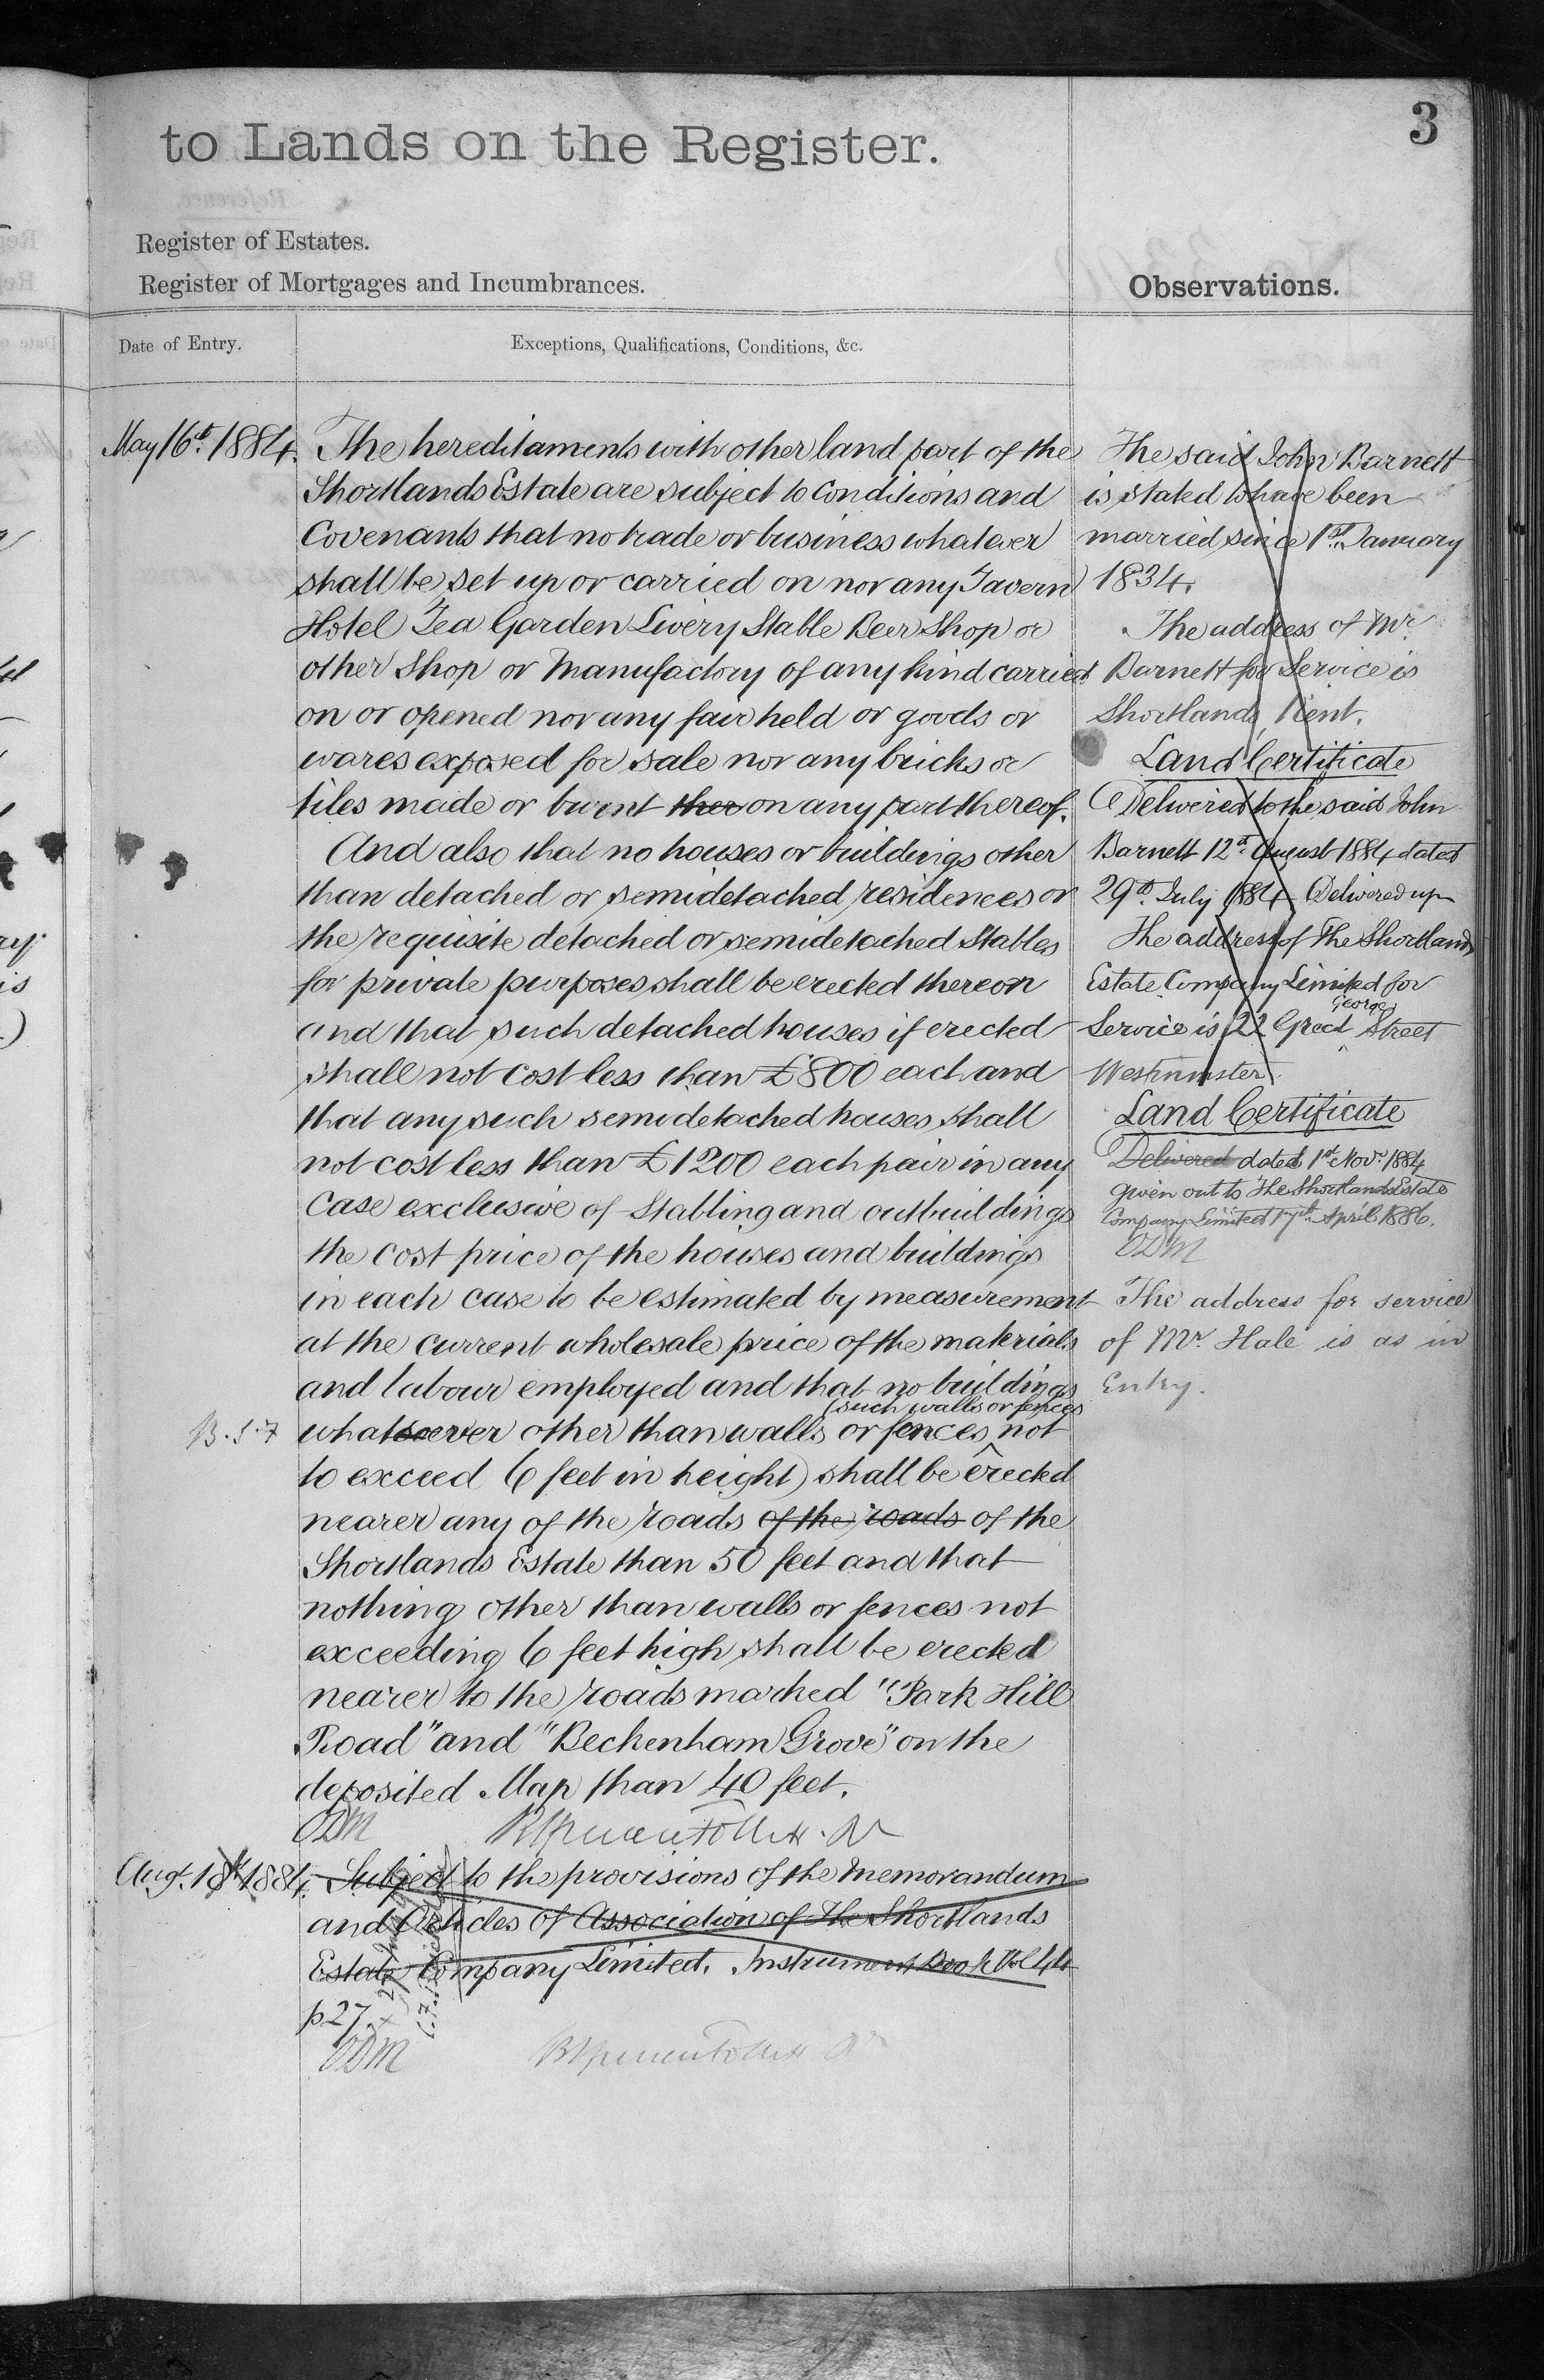 to Lands on the Register.
3
Register of Estates.
Register of Mortgages and Incumbrances.
Observations.
Date of Entry.
Exceptions, Qualifications, Conditions, &c.
May 16th. 1884.
The hereditaments with other land part of the
Shortlands Estate are subject to Conditions and
Covenants that no trade or business whatever
shall be set up or carried on nor any Tavern
Hotel Tea Garden Livery Stable Beer Shop or
other Shop or Manufactory of any kind carried
on or opened nor any fair held or goods or
wares exposed for sale nor any bricks or
tiles made or burnt ther on any part thereof.
And also that no houses or buildings other
than detached or semidetached residences or
the requisite detached or semidetached Stables
for private purposes shall be erected thereon
and that such detached houses if erected
shall not cost less than £800 each and
that any such semidetached houses shall
not cost less than £1200 each pair in any
Case exclusive of Stabling and outbuildings
the cost price of the houses and buildings
in each case to be estimated by measurement
at the current wholesale price of the materials
and labour employed and that no buildings
(such walls or fences
whatsoever other than walls or fences not
to exceed 6 feet in height) shall be erected
nearer any of the roads of the roads of the
Shortlands Estate than 50 feet and that
nothing other than walls or fences not
exceeding 6 feet high shall be erected
nearer to the roads marked "Park Hill
Road" and "Beckenham Grove" on the
deposited Map than 40 feet.
ODM
Augt. 18th 1884.
Subject to the provisions of the Memorandum
and Articles of Association of The Shortlands
Estate Company Limited. Instrument Book Vol 44
p 27.
ODM
The said John Barnett
is stated to have been
married since 1st. January
1834.
The address of Mr.
Barnett for Service is
Shortlands, Kent.
Land Certificate
Delivered to the said John
Barnett 12th. August 1884 dated
29th. July 1884 Delivered up
The address of The Shortlands
Estate Company Limited for
George
Service is 22 Great Street
Westminster.
Land Certificate
Delivered dated 1st Novr. 1884
given out to The Shortlands Estate
Company Limited 17th April 1886.
ODM
The address for service
of Mr. Hale is as in
Entry.